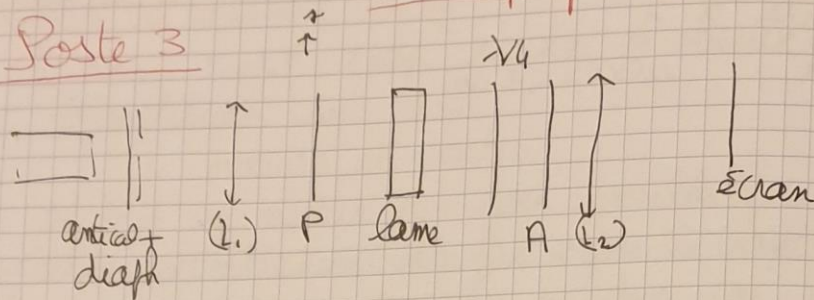 Poste 3
λ/4
antical +
diaph
(L₁)
P
lame
A
(L₂)
Écran